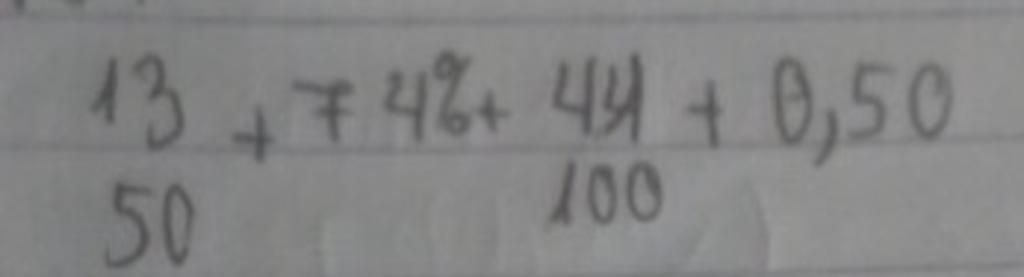 13/50 + 74% + 44/100 + 0,50